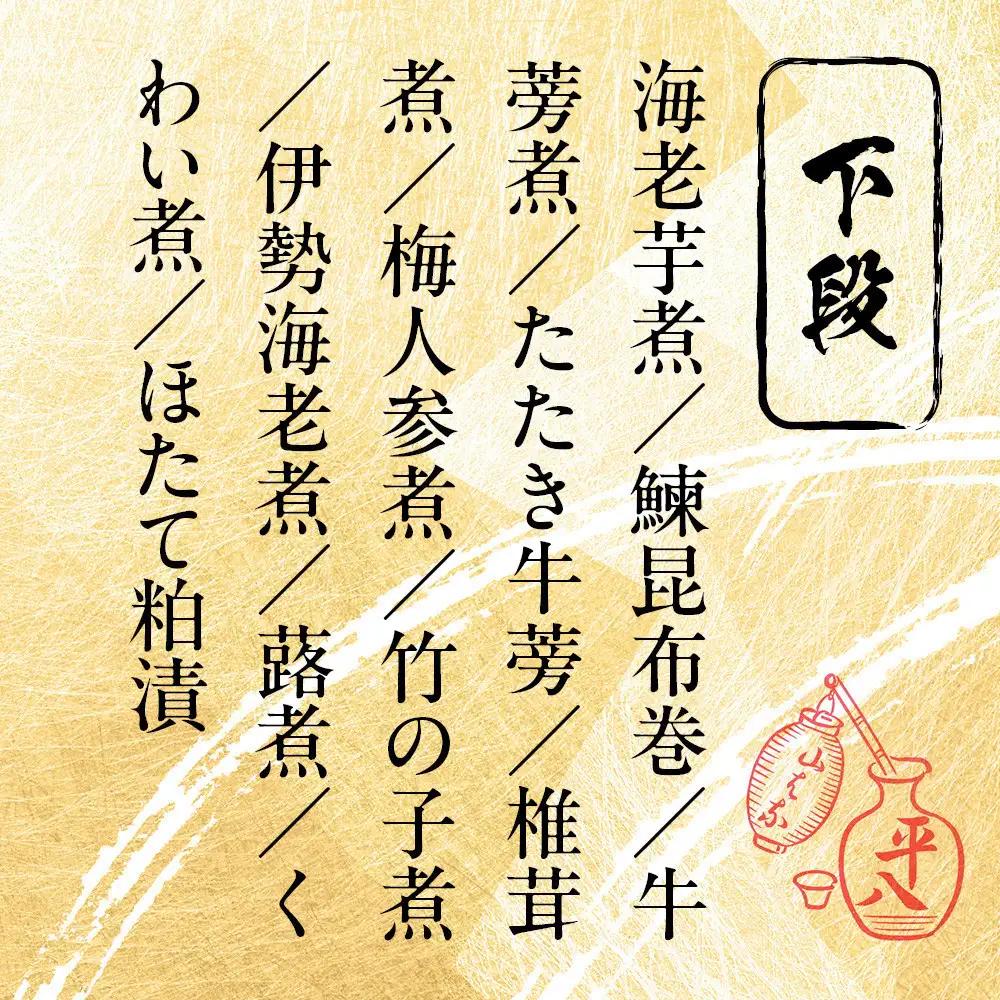 下段
海老芋煮／鰊昆布巻／牛
蒡煮／たたき牛蒡／椎茸
煮／梅人参煮／竹の子煮
／伊勢海老煮／蕗煮／く
わい煮／ほたて粕漬
山ばな
平八